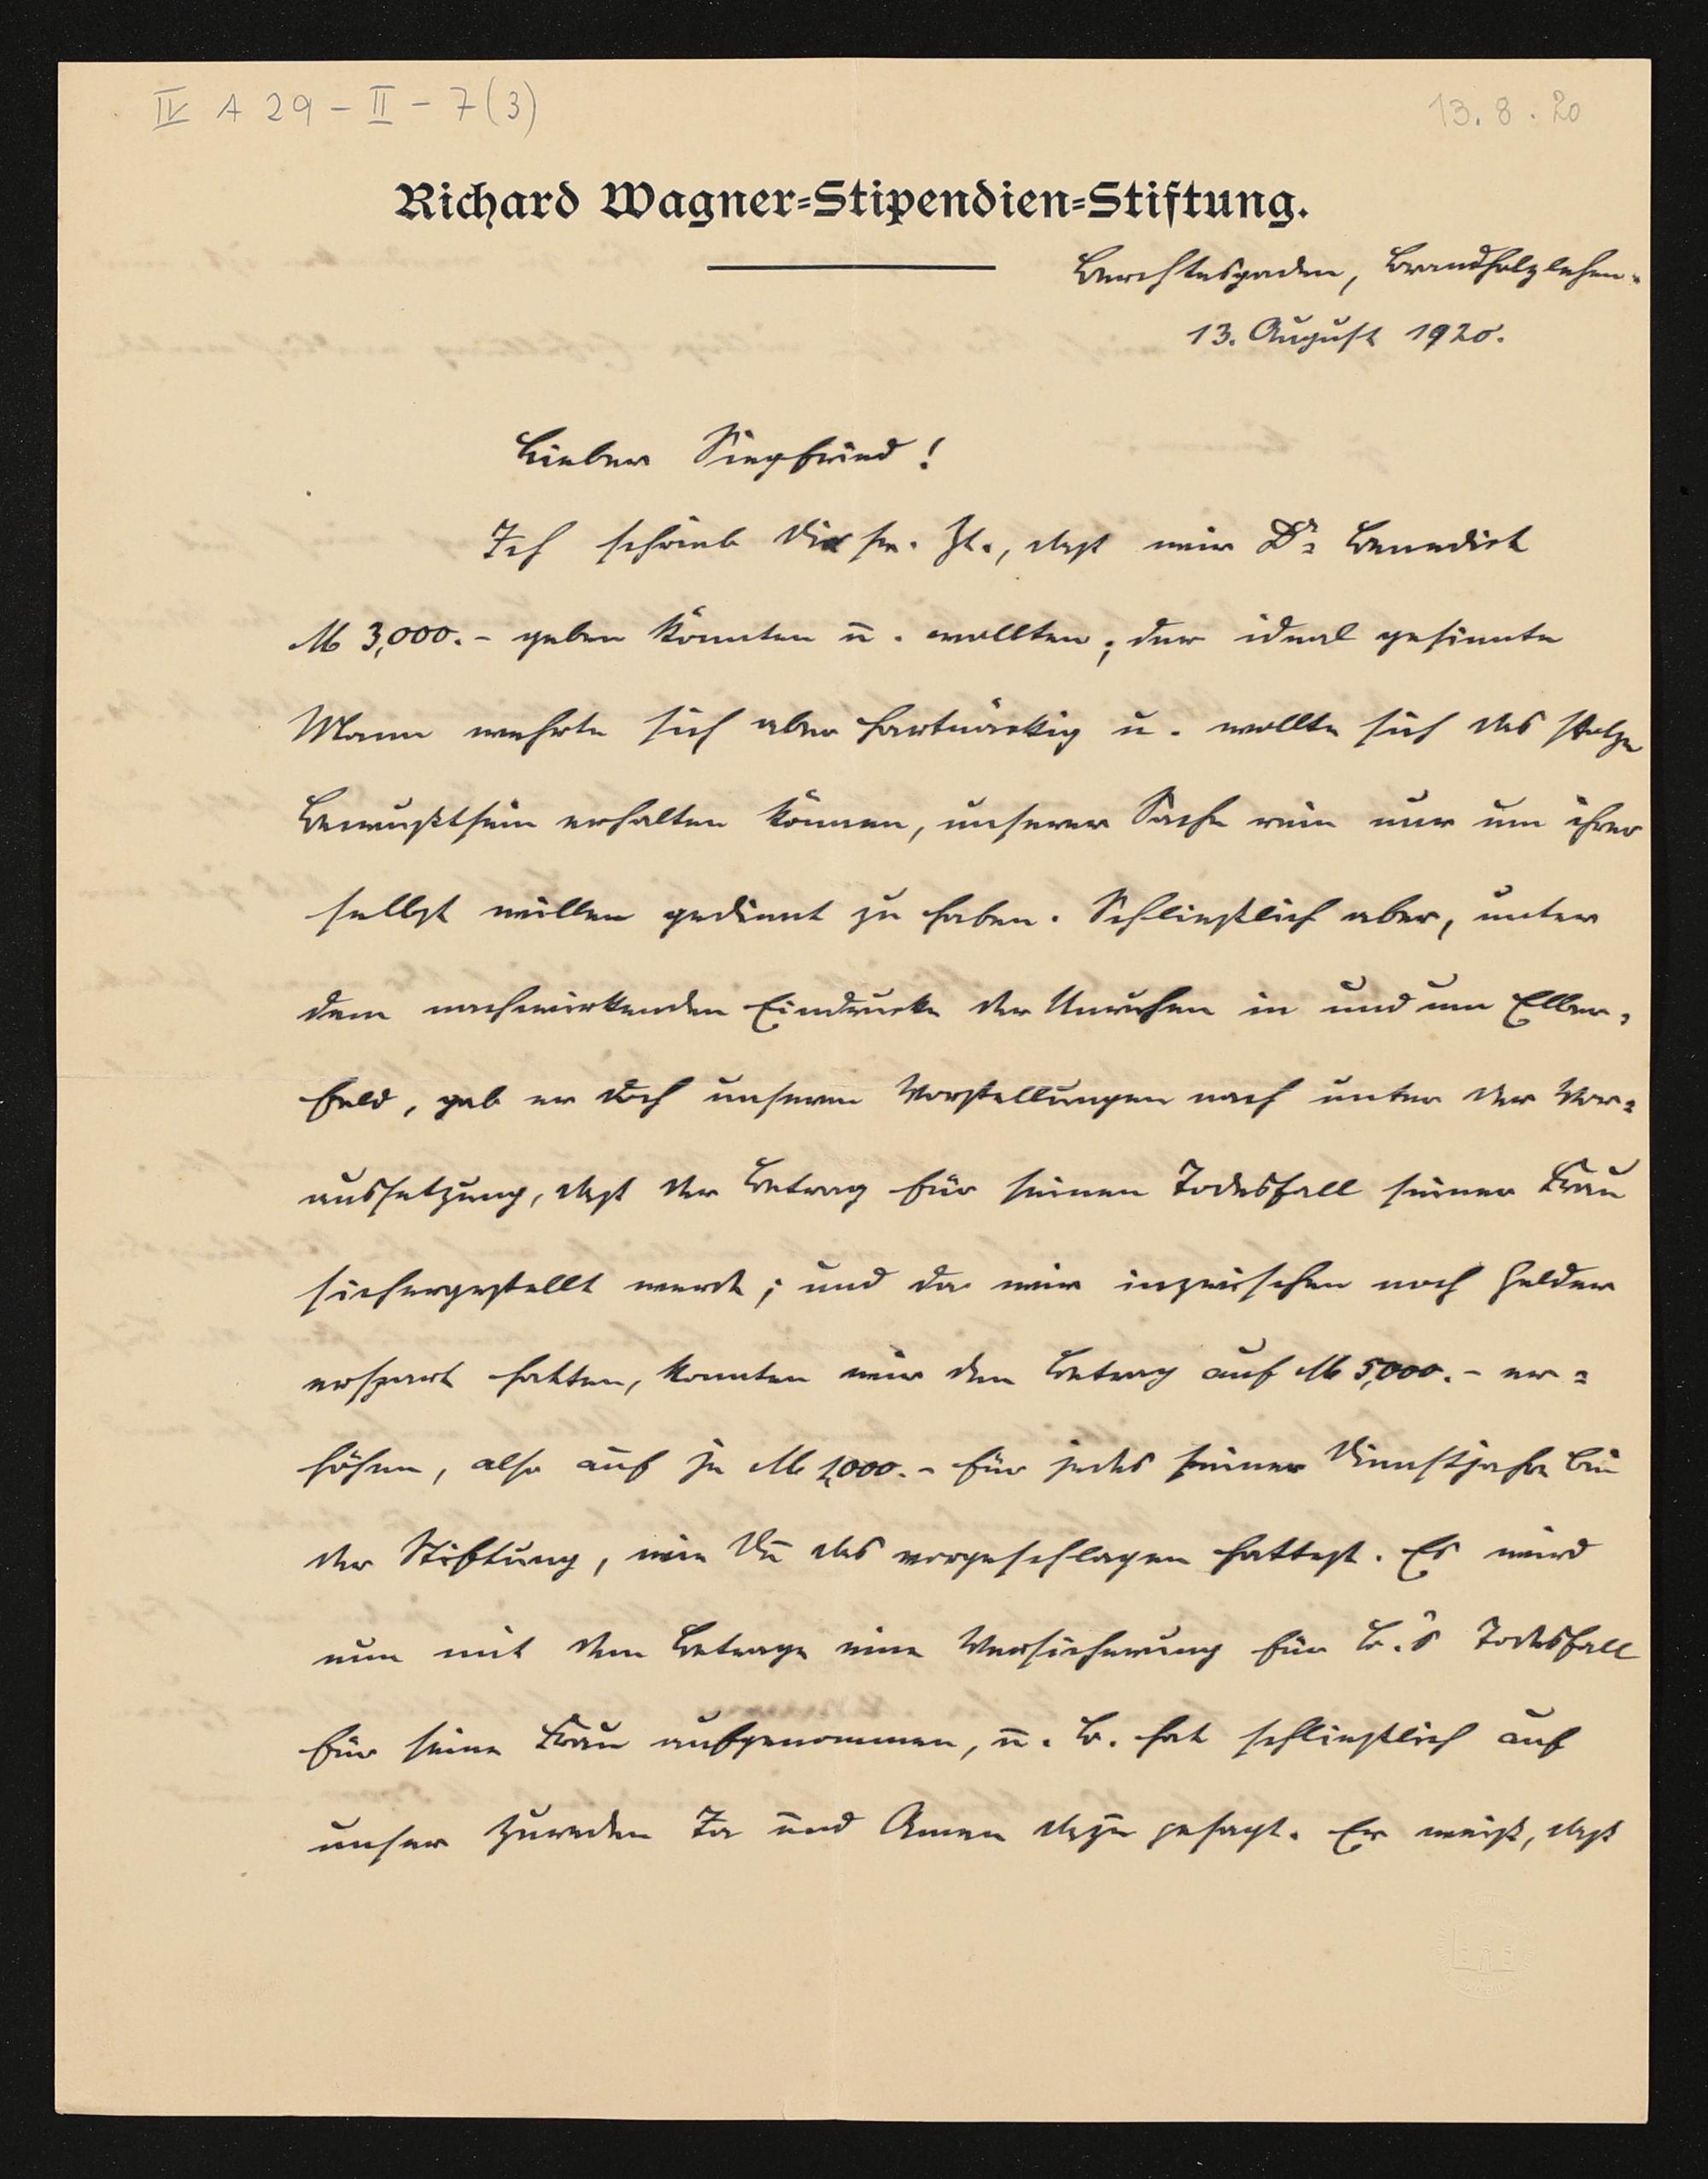 IV A 29 - II - 7 (3)
13. 8. 20
Richard Wagner-Stipendien-Stiftung.
Berchtesgaden, Brandholzlehen.
13. August 1920.
Lieber Siegfried!
Ich schrieb Dir sr. Zt., dass wir Dr. Benedict
M 3,000.- geben könnten u. wollten; der ideal gesinnte
Mann wehrte sich aber hartnäckig u. wollte sich das stolze
Bewusstsein erhalten können, unserer Sache rein nur um ihrer
selbst willen gedient zu haben. Schliesslich aber, unter
dem nachwirkenden Eindrucke der Unruhen in und um Elber-
feld, gab er doch unseren Vorstellungen nach unter der Vor-
aussetzung, dass der Betrag für seinen Todesfall seiner Frau
sichergestellt werde; und da wir inzwischen noch Gelder
erspart hatten, konnten wir den Betrag auf M 5,000.- er-
höhen, also auf je M 1,000.- für jedes seiner Dienstjahre bei
der Stiftung, wie Du das vorgeschlagen hattest. Es wird
nun mit dem Betrage eine Versicherung für B.'s Todesfall
für seine Frau aufgenommen, u. B. hat schliesslich auf
unser Zureden Ja und Amen dazu gesagt. Er weiss, dass